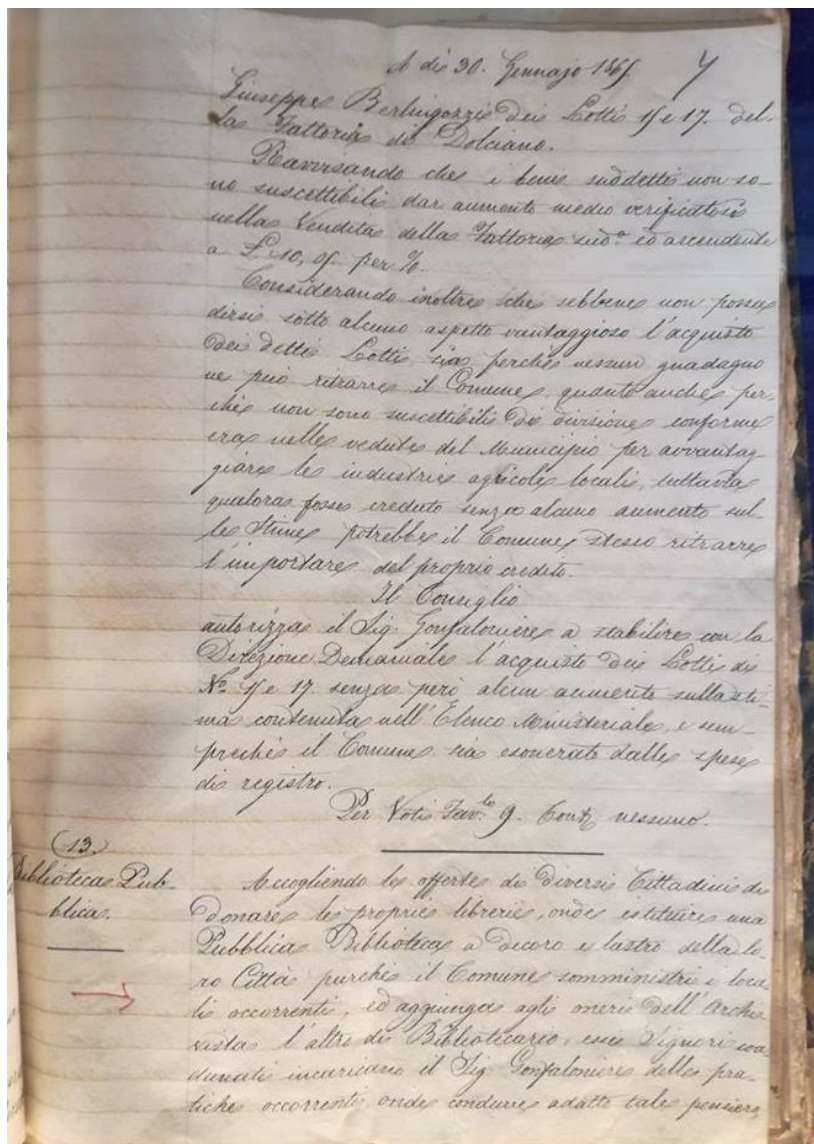 A dì 30. Gennajo 1865.
Giuseppe Berlingozzi dei Lotti 15 e 17. del-
la Fattoria di Dolciano.
Ravvisando che i beni suddetti non so-
no suscettibili dar aumento medio verificatosi
nella Vendita della Fattoria sudᵃ ed ascendente
a £ 10, 95. per %.
Considerando inoltre che sebbene non possa
dirsi sotto alcuno aspetto vantaggioso l'acquisto
dei detti Lotti, sia perchè nessun guadagno
ne può ritrarre il Comune, quanto anche per-
chè non sono suscettibili di divisione conforme
era nelle vedute del Municipio per avvantag-
giare le industrie agricole locali, tuttavia
qualora fosse creduto senza alcuno aumento sul-
le Stime potrebbe il Comune stesso ritrarre
l'importare del proprio credito.
Il Consiglio
autorizza il Sig. Gonfaloniere a stabilire con la
Direzione Demaniale l'acquisto dei Lotti di
Nº 15 e 17. senza però alcun aumento sulla sti-
ma contenuta nell'Elenco Ministeriale, e sem-
prechè il Comune sia esonerato dalle spese
di registro.
Per Voti Favˡⁱ 9. Contʳ nessuno.
(13.)
Biblioteca Pub-
blica.
Accogliendo le offerte di diversi Cittadini di
donare le proprie librerie, onde istituire una
Pubblica Biblioteca a decoro e lustro della lo-
ro Città purchè il Comune somministri i loca-
li occorrenti, ed aggiunga agli oneri dell'Archi-
vista l'altro di Bibliotecario, essi Signori coa-
dunati incaricano il Sig. Gonfaloniere delle pra-
tiche occorrenti onde condurre adatto tale pensiero,